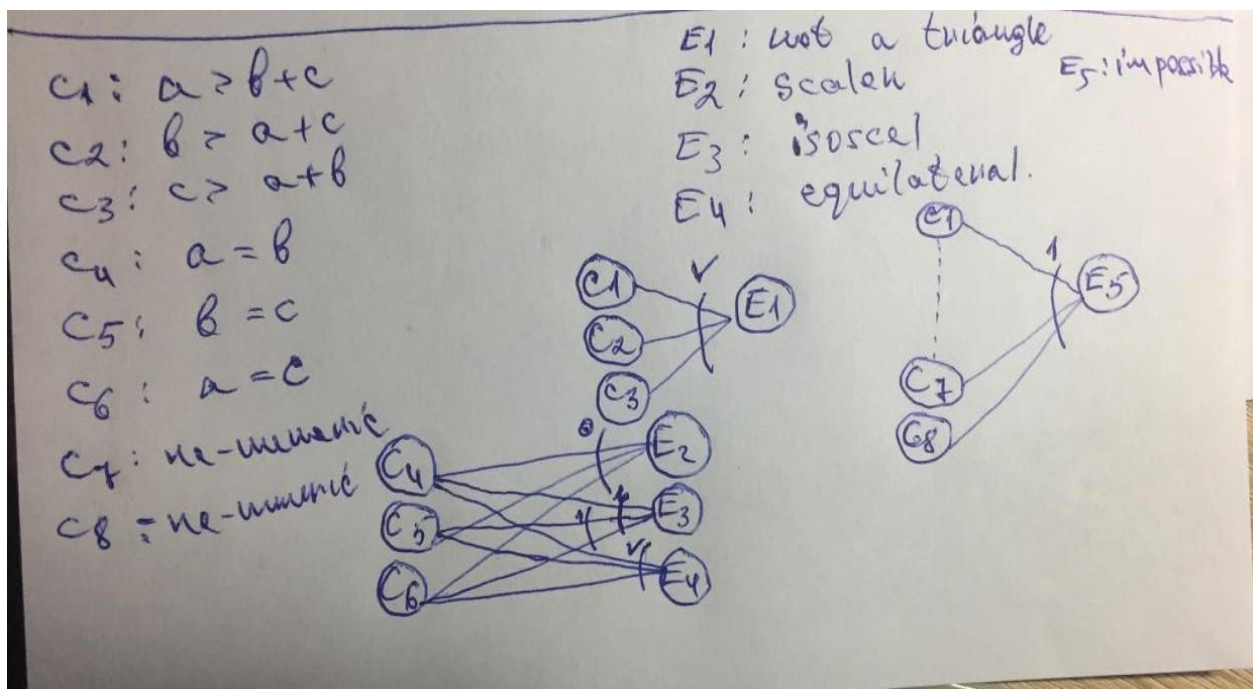 C1: a > b+c
C2: b > a+c
C3: c > a+b
C4: a = b
C5: b = c
C6: a = c
C7: не-
C8: не-
E1: not a triangle
E2: scalen
E3: isoscel
E4: equilaterial.
E5: impossible
C1
C2
C3
E1
V
C4
C5
C6
E2
E3
E4
V
C1
C7
C8
E5
1